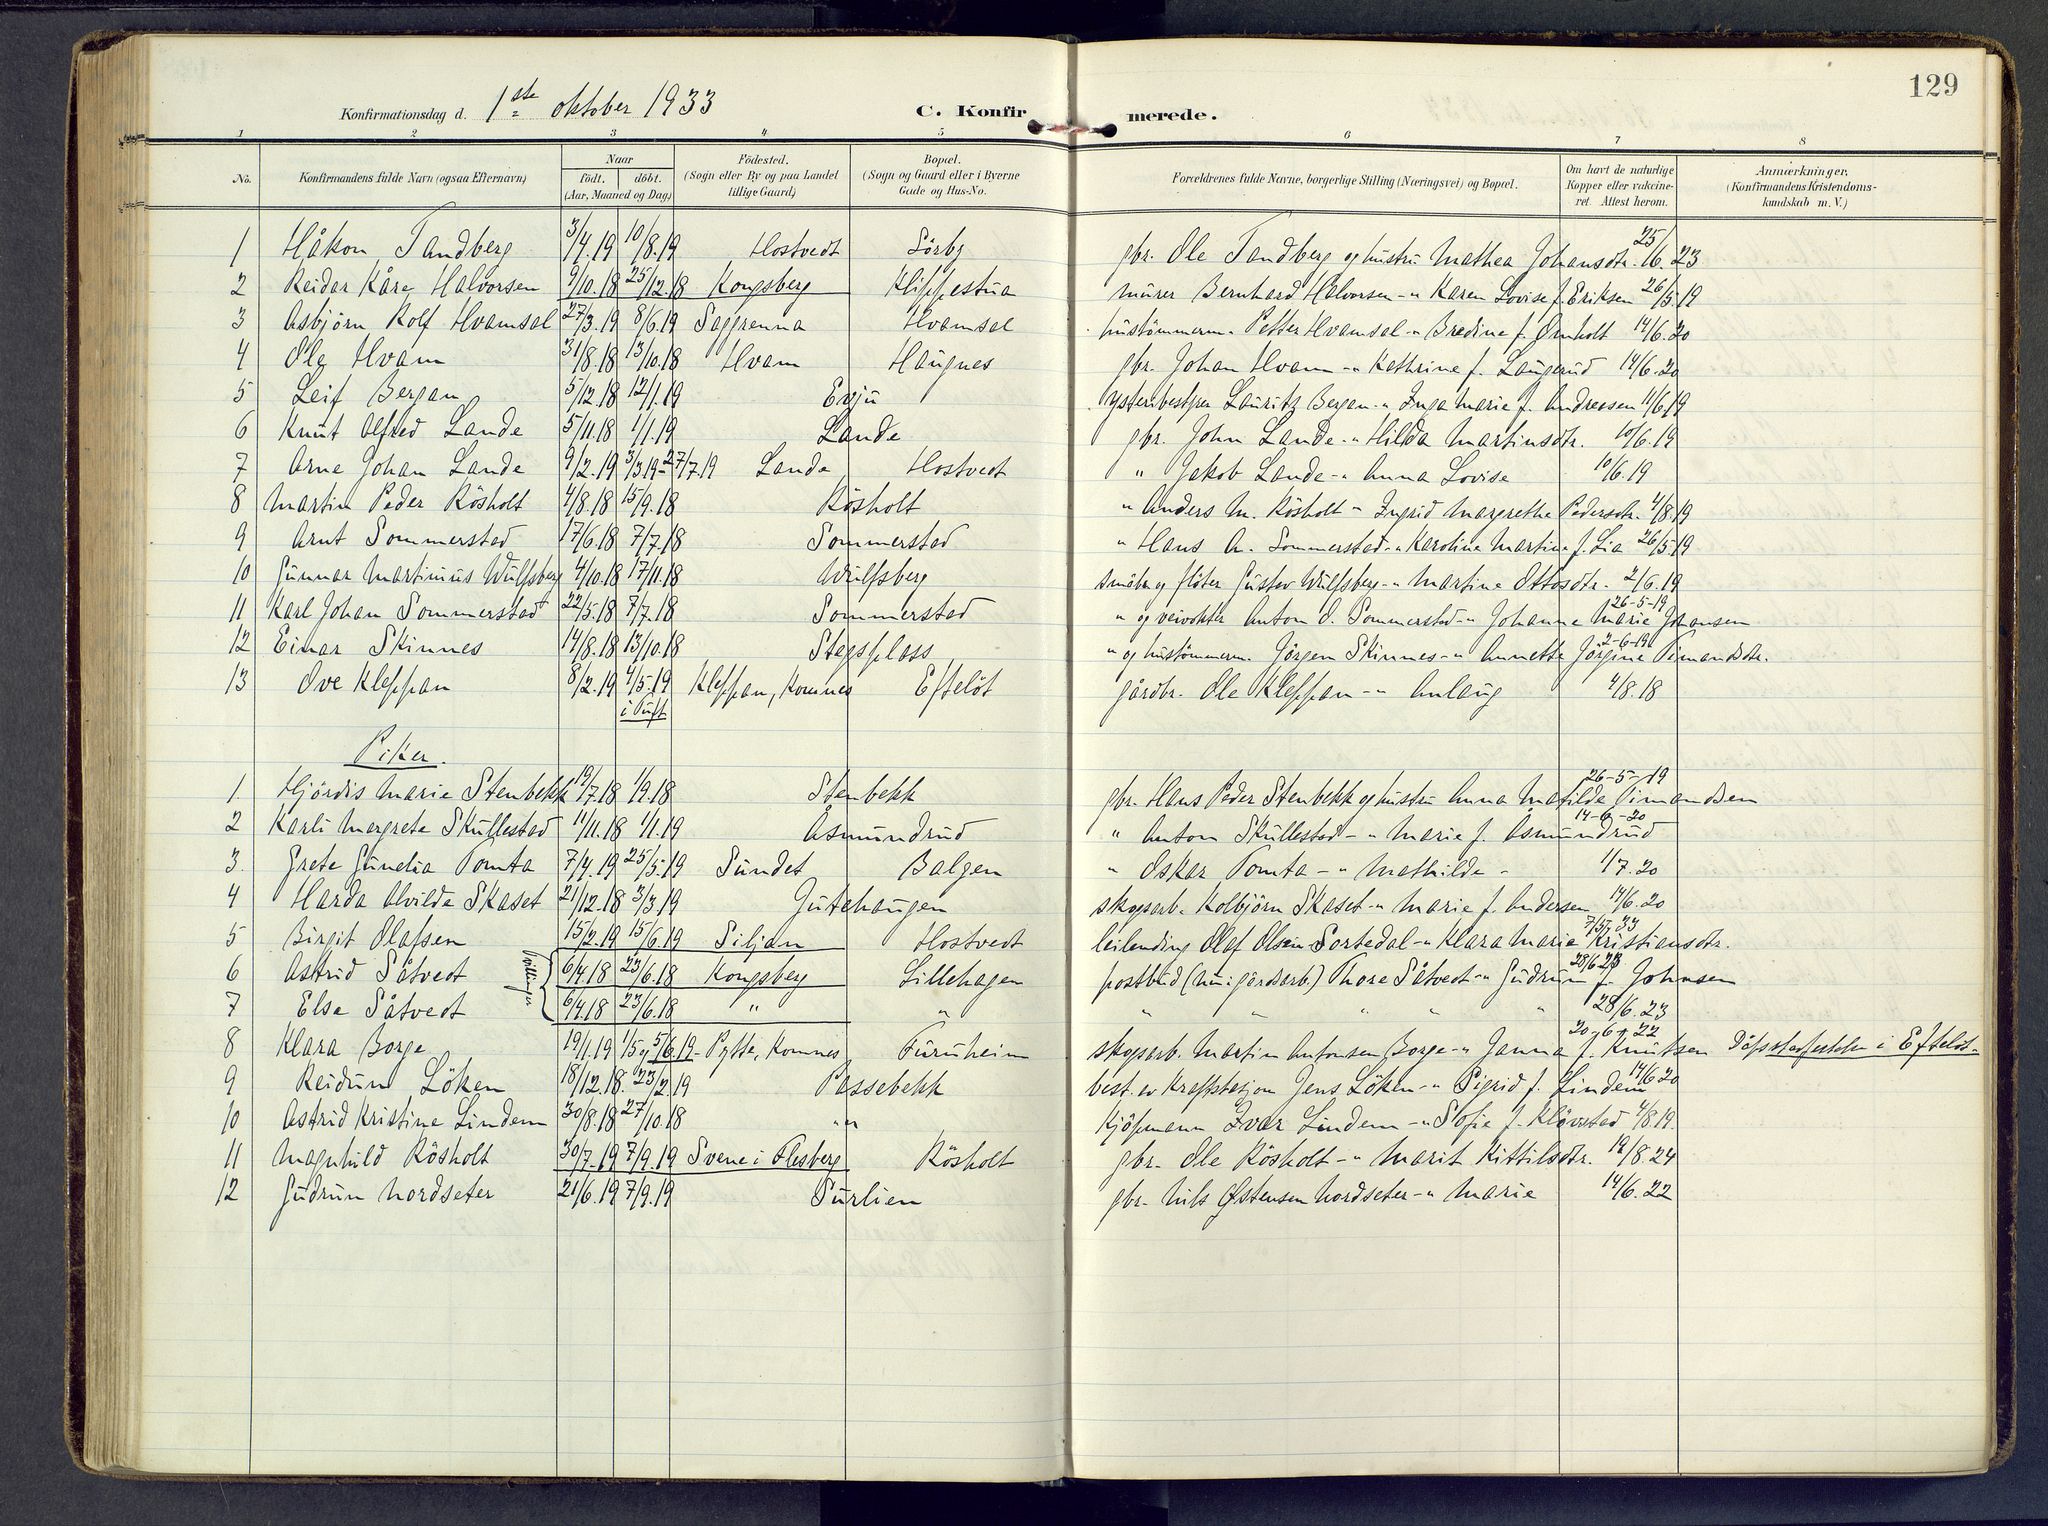 129
Konfirmationsdag d. 1ste oktober 1933 C. Konfirmerede.
1 2 3 4 5 6 7 8
No. Konfirmandens fulde Navn (ogsaa Efternavn) Naar födt. döbt. (Aar, Maaned og Dag) Födested. (Sogn eller By og paa Landet tillige Gaard) Bopæl. (Sogn og Gaard eller i Byerne Gade og Hus-No. Forældrenes fulde Navne, borgerlige Stilling (Næringsvei) og Bopæl. Om havt de naturlige Kopper eller vaccineret. Attest herom. Anmærkninger. (Konfirmandens Kristendomskundskab m. V.)
1 Håkon Tandberg 3/4.19 10/8.19 Hostvedt Sörby gbr. Ole Tandberg og hustru Mathea Johansdtr. 25/6.23
2 Reidar Kåre Halvorsen 9/10.18 25/12.18 Kongsberg Klippestua murer Bernhard Halvorsen -"- Karen Lovise f. Eriksen 26/5.19
3 Asbjörn Rolf Hvamsal 27/3.19 8/6.19 Saggrenna Hvamsal hustömmerm. Petter Hvamsal -"- Bredine f. Ornholt 14/6.20
4 Ole Hvam 31/8.18 13/10.18 Hvam Haugnes gbr. Johan Hvam -"- Kathrine f. Laugerud 14/6.20
5 Leif Bergan 5/12.18 12/1.19 Evju Lauritz Bergan -"- Inga Marie f. Andresen 11/6.19
6 Knut Alfred Lande 5/11.18 1/1.19 Lande gbr. John Lande -"- Hilda Martinsdtr. 10/6.19
7 Arne Johan Lande 9/2.19 3/3.19-27/7.19 Lande Hostvedt " Jakob Lande -"- Anna Lovise 10/6.19
8 Martin Peder Rösholt 4/8.18 15/9.18 Rösholt " Anders M. Rösholt -"- Ingrid Margrethe Pedersdtr. 4/8.19
9 Arnt Sommerstad 17/6.18 7/7.18 Sommerstad " Hans A. Sommerstad -"- Karoline Martine f. Lia 26/5.19
10 Gunnar Martinius Wulfsberg 4/10.18 17/11.18 Wulfsberg småbr. og flöter Gustav Wulfsberg -"- Martine Ottosdtr. 2/6.19
11 Karl Johan Sommerstad 22/5.18 7/7.18 Sommerstad " og veivokter Anton O. Sommerstad -"- Johanne Marie Johansen 26-5-19
12 Einar Skinnes 14/8.18 13/10.18 Stegsplass " og hustömmerm. Jörgen Skinnes -"- Annette Jörgine Timandsdtr. 2-6-19
13 Ove Kleppan 8/2.19 4/5.19 Kleppan, Komnes Eftelöt gårdbr. Ole Kleppan -"- Anlaug 4/8.18
Piker.
1 Hjördis Marie Stenbekk 19/7.18 1/9.18 Stenbekk gbr. Hans Peder Stenbekk og hustru Anna Matilde Timandsen 26-5-19
2 Karli Margrete Skullestad 11/11.18 1/1.19 Åsmundrud " Anton Skullestad -"- Marie f. Åsmundrud 14-6-20
3. Grete Gunelia Tomta 7/4.19 25/5.19 Sundet Balgen " Oskar Tomta -"- Mathilde - 1/7.20
4 Harda Alvilde Skaset 21/12.18 3/3.19 Gutehaugen skogsarb. Kolbjörn Skaset -"- Marie f. Andersen 14/6.20
5 Birgit Olafsen 15/2.19 15/6.19 Siljan Hostvedt leilending Olaf Olsen Sortedal -"- Klara Marie Kristiansdtr. 7/3.33
6 Astrid Såtvedt Tvillinger 6/4.18 23/6.18 Kongsberg Lillehagen postbud (nu: gårdsarb.) Thore Såtvedt -"- Gudrun f. Johnsen 28/6.23
7 Else Såtvedt 6/4.18 23/6.18 " " " " " " " 28/6.23
8 Klara Borge 19/1.19 1/5 og 5/6.19 Pytte, Komnes Furuheim skogsarb. Martin Antonsen Borge -"- Janna f. Knutsen 20-6-22 Dåpsstadfestelse i Eftelöt
9 Reidun Löken 18/12.18 23/2.19 Passebekk best. av kraftstasjon Jens Löken -"- Sigrid f. Lindem 14/6.20
10 Astrid Kristine Lindem 30/8.18 27/10.18 " kjöpmann Ivar Lindem -"- Sofie f. Klövstad 4/8.19
11 Magnhild Rösholt 30/7.19 7/9.19 Svene i Flesberg Rösholt gbr. Ole Rösholt -"- Marit Kittilsdtr. 12/8.24
12 Gudrun Nordseter 21/6.19 7/9.19 Surlien gbr. Nils Østensen Nordseter -"- Marie 14/6.22